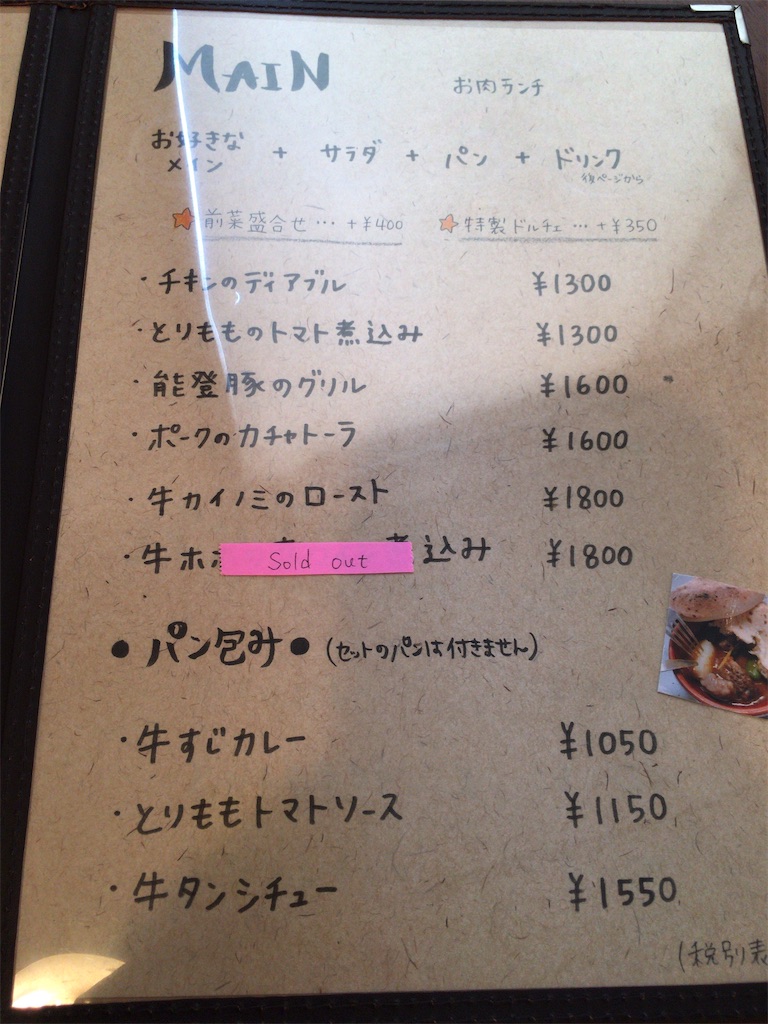 MAIN お肉ランチ
お好きな
メイン + サラダ + パン + ドリンク
後ページから
前菜盛合せ… +¥400 特製ドルチェ… +¥350
・チキンのディアブル ¥1300
・とりもものトマト煮込み ¥1300
・能登豚のグリル ¥1600
・ポークのカチャトーラ ¥1600
・牛カイノミのロースト ¥1800
・牛ホ Sold out 煮込み ¥1800
●パン包み● (セットのパンは付きません)
・牛すじカレー ¥1050
・とりももトマトソース ¥1150
・牛タンシチュー ¥1550
(税別表